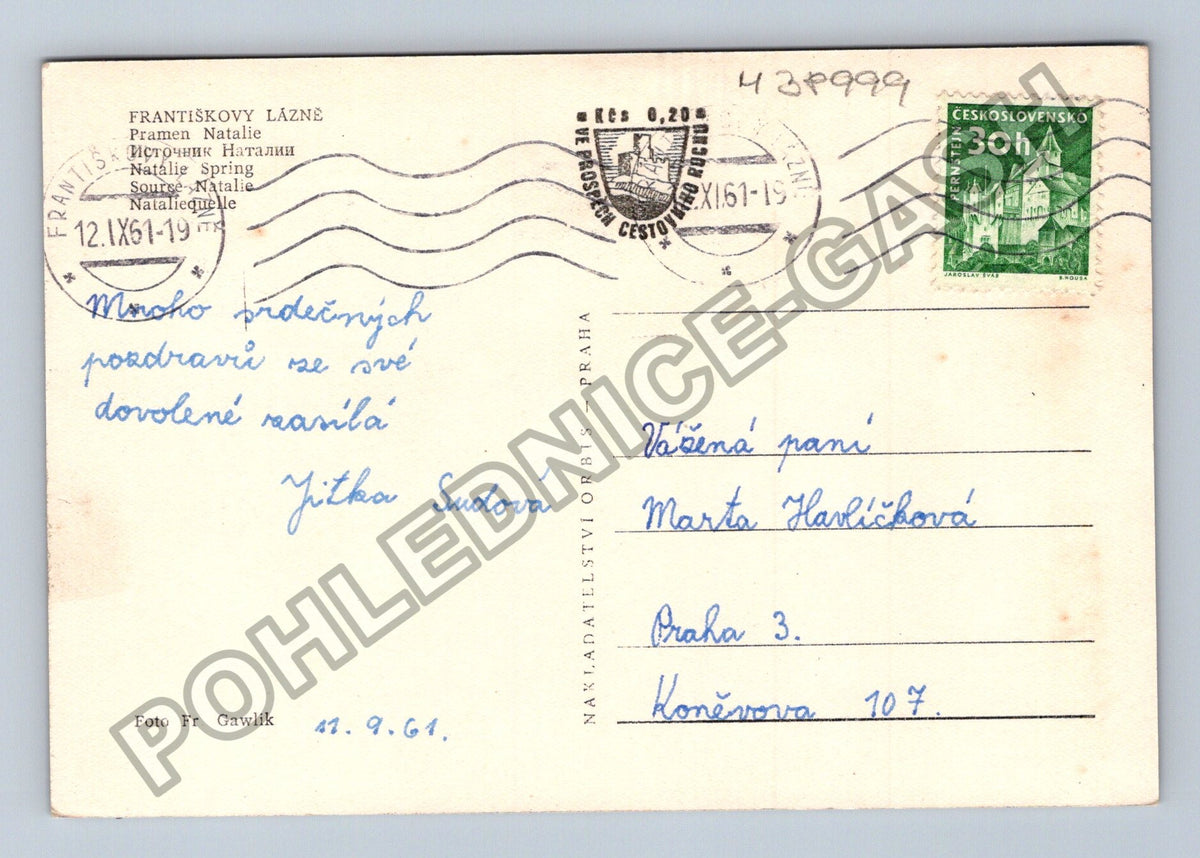 FRANTIŠKOVY LÁZNĚ
Pramen Natalie
Источник Наталии
Natalie Spring
Source Natalie
Nataliequelle
12.IX61-19
Kčs 0,20
VE PROSPĚCH CESTOVNÍHO RUCHU
XI.61-19
H 38999
ČESKOSLOVENSKO
30h
PERNŠTEJN
JAROSLAV ŠVÁB
Mnoho srdečných
pozdravů ze své
dovolené zasílá
Jitka Sudová
Foto Fr Gawlik
11. 9. 61.
NAKLADATELSTVÍ ORBIS - PRAHA
Vážená paní
Marta Havlíčková
Praha 3.
Koněvova 107.
POHLEDNICE-GASH